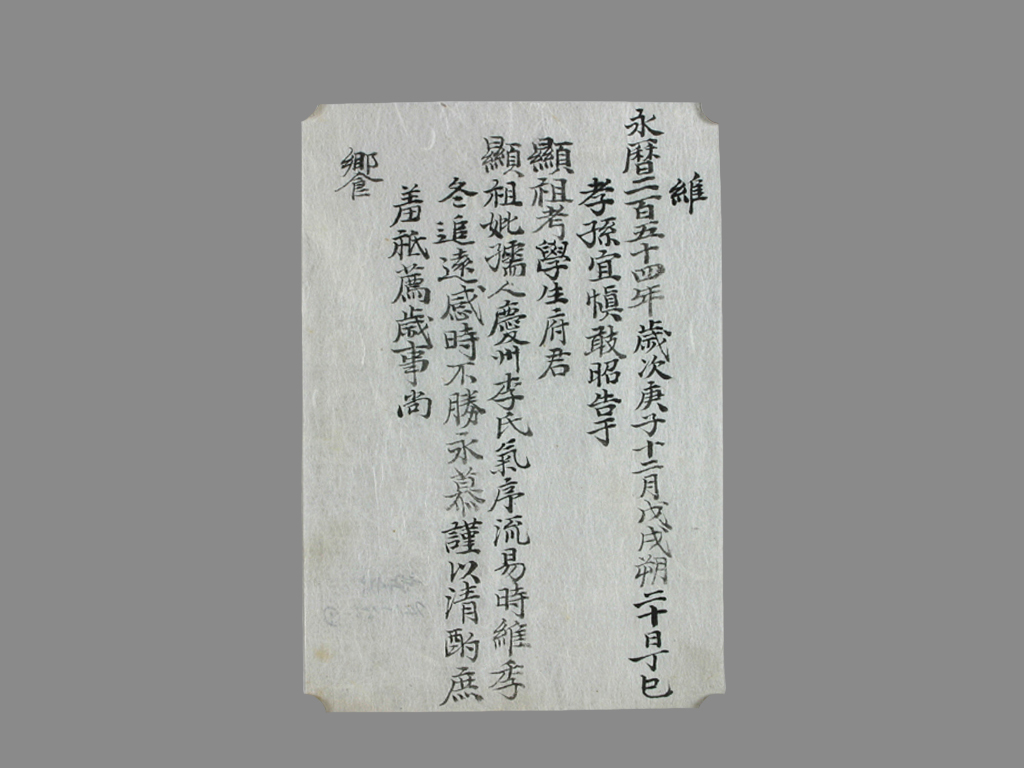 維
永暦二百五十四年歳次庚子十二月戊戌朔二十日丁巳
孝孫宜愼敢昭告于
顯祖考學生府君
顯祖妣孺人慶州李氏氣序流易時維季
冬追遠感時不勝永慕謹以清酌庶
羞祗薦歳事尚
饗